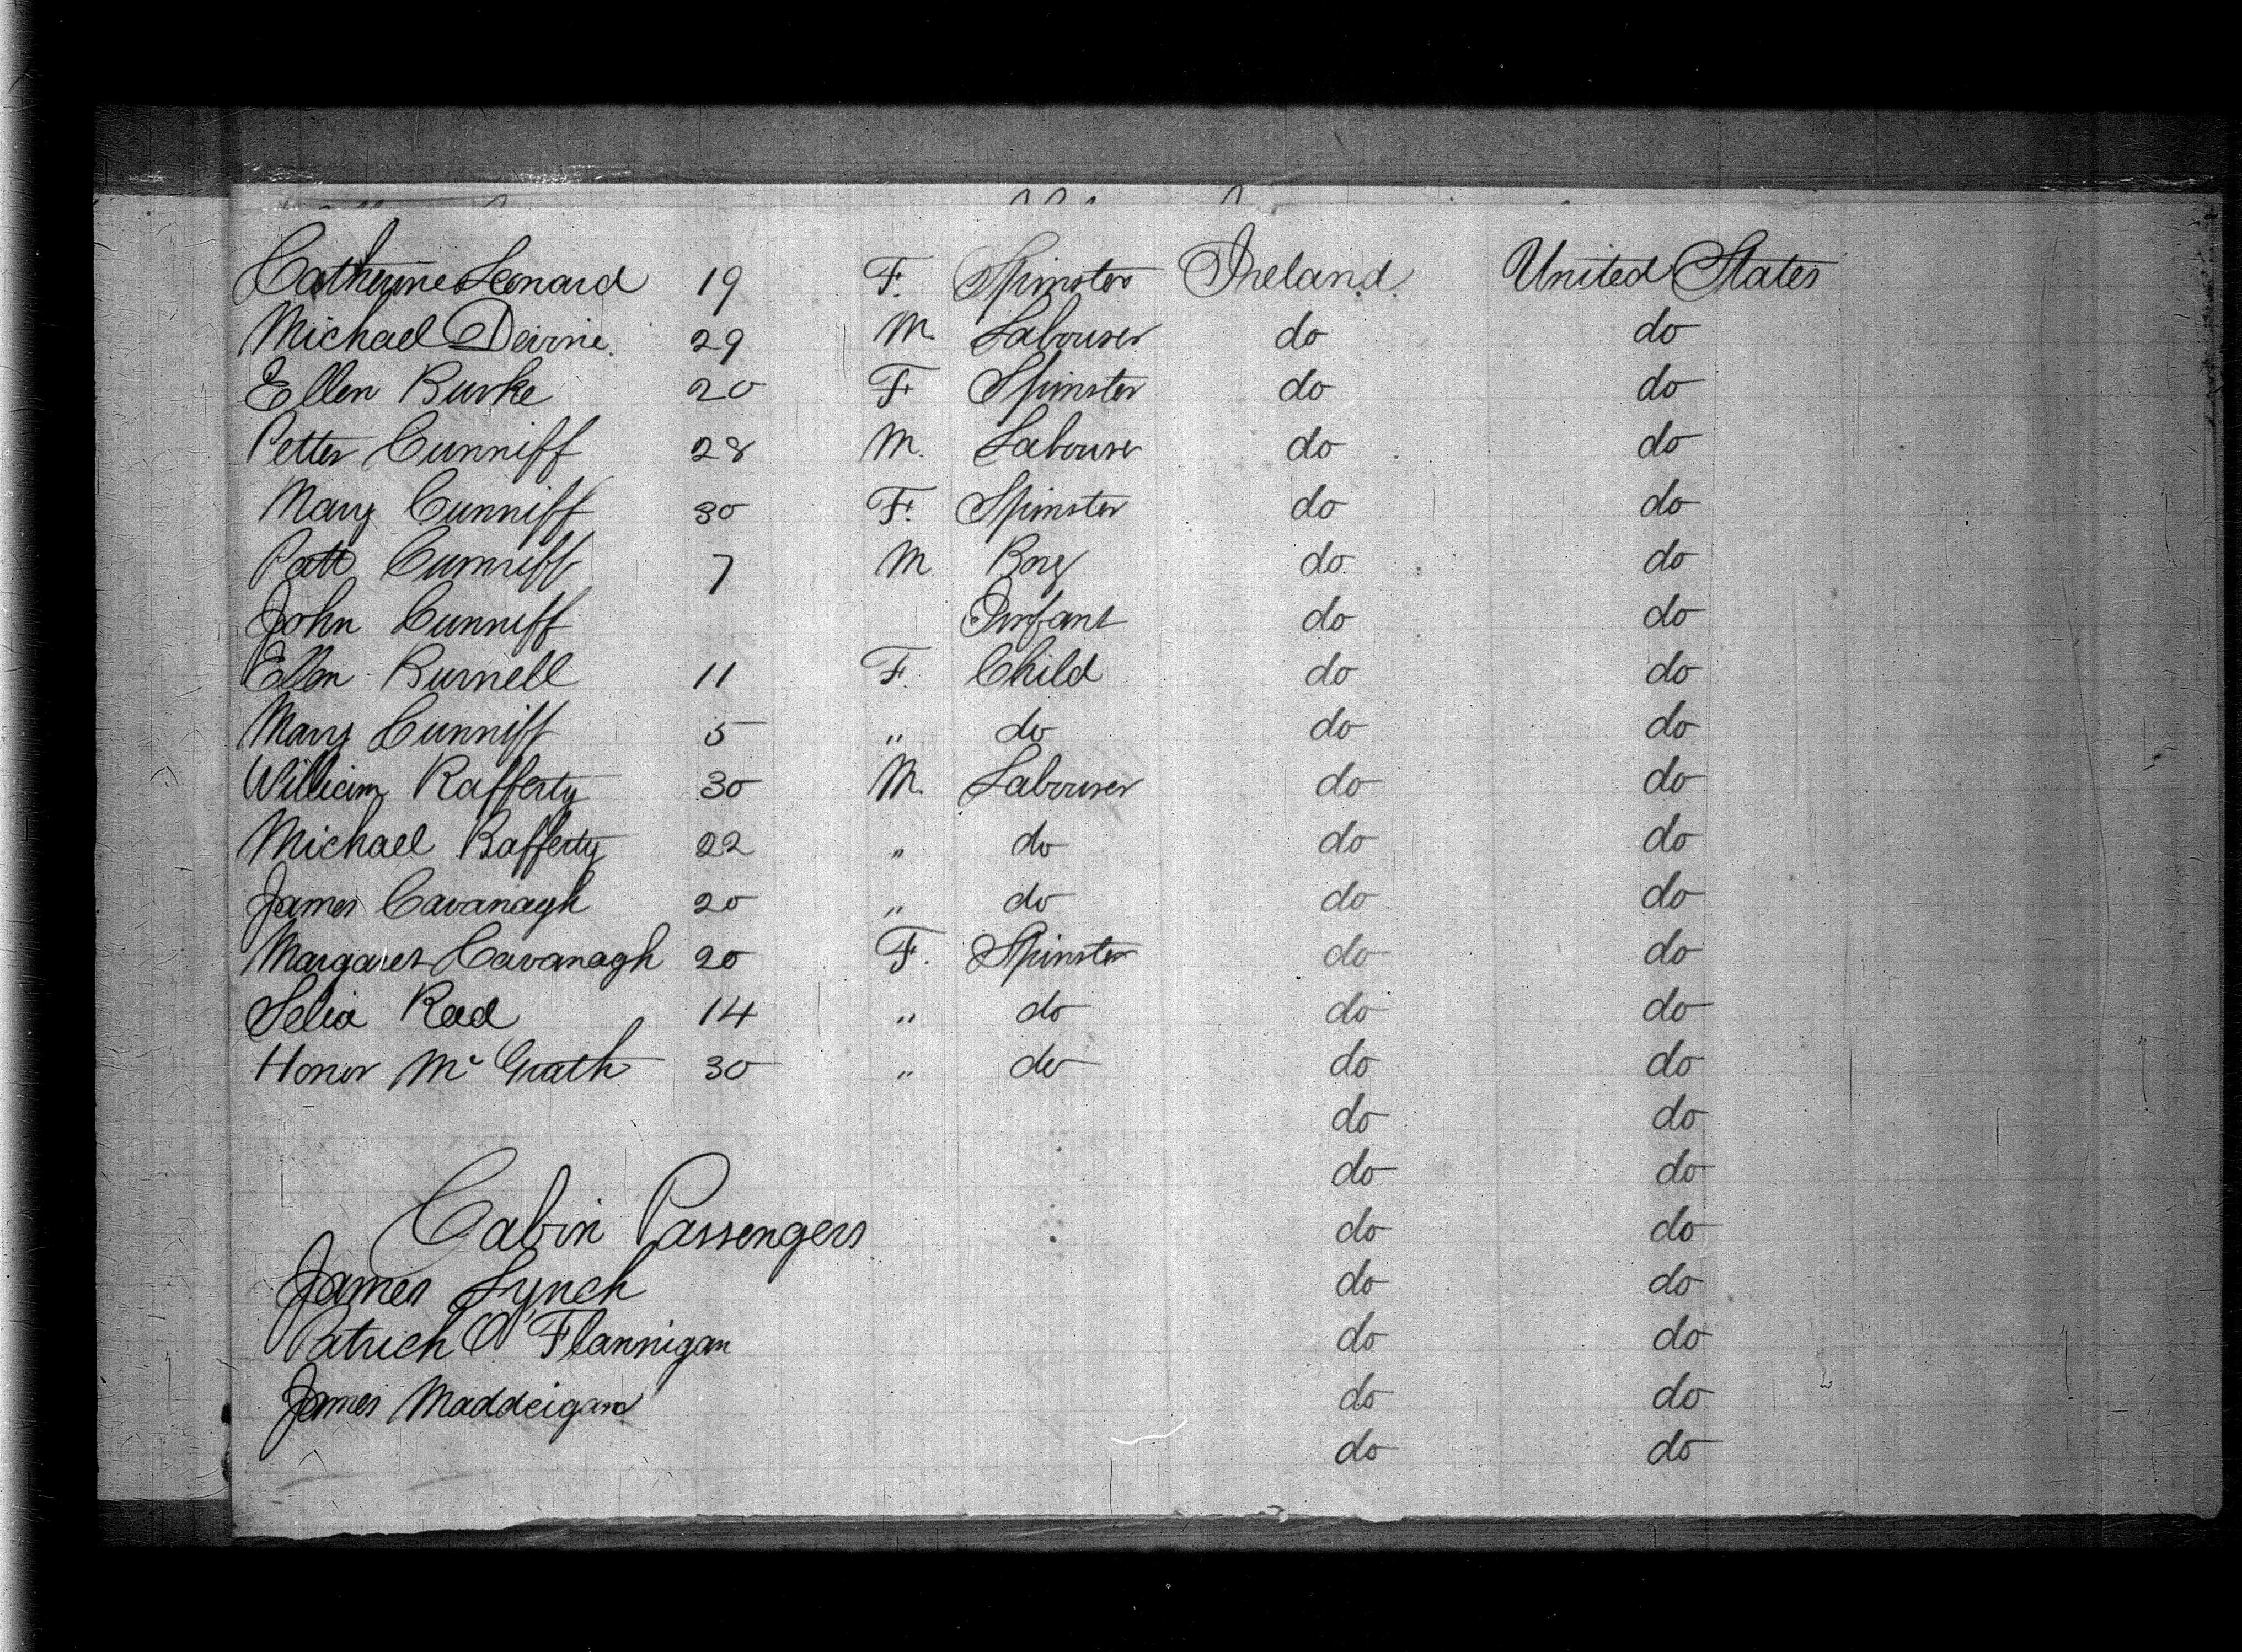 Catherine Leonard 19 F. Spinster Ireland United States
Michael Devine 29 M. Labourer do do
Ellen Burke 20 F Spinster do do
Petter Cunniff 28 M. Labourer do do
Mary Cunniff 30 F. Spinster do do
Patt Cunniff 7 M Boy do do
John Cunniff Infant do do
Ellen Burnell 11 F. Child do do
Mary Cunniff 5 " do do do
William Rafferty 30 M. Labourer do do
Michael Rafferty 22 " do do do
James Cavanagh 20 " do do do
Margaret Cavanagh 20 F. Spinster do do
Selia Read 14 " do do do
Honor Mc Grath 30 " do do do
do do
do do
Cabin Passengers do do
James Lynch do do
Patrick O'Flannigan do do
James Maddeigan do do
do do